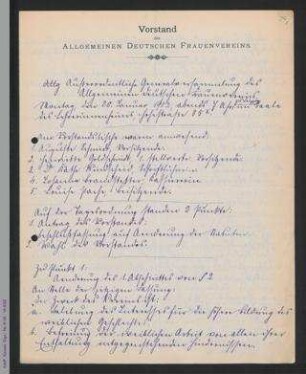 Vorstand
des
ALLGEMEINEN DEUTSCHEN FRAUENVEREINS
Außerordentliche Generalversammlung des
Allgemeinen deutschen Frauenvereins
Montag den 20. Januar abends 7 Uhr im Saale
des Lehrerinnenheims
Am Vorstandstische waren anwesend:
1. Auguste Schmidt, Vorsitzende
2. Henriette Goldschmidt, stellvertr. Vorsitzende
3. Käthe Windscheid, Schriftführerin
4. Rosalie
5. Louise Pache, Beisitzende
Auf der Tagesordnung standen 2 Punkte:
1. Antrag des Vorstandes
Beschlußfassung auf Änderung der Statuten
2. Wahl des Vorstandes.
Zu Punkt 1.
Änderung des 1. Abschnittes von § 2
An Stelle der jetzigen Fassung:
Der Zweck des Vereins ist:
a. Belebung des Interesses für die höhere Bildung des
weiblichen Geschlechtes
b. Befreiung der weiblichen Arbeit von allen ihrer
Entfaltung entgegenstehenden Hindernissen